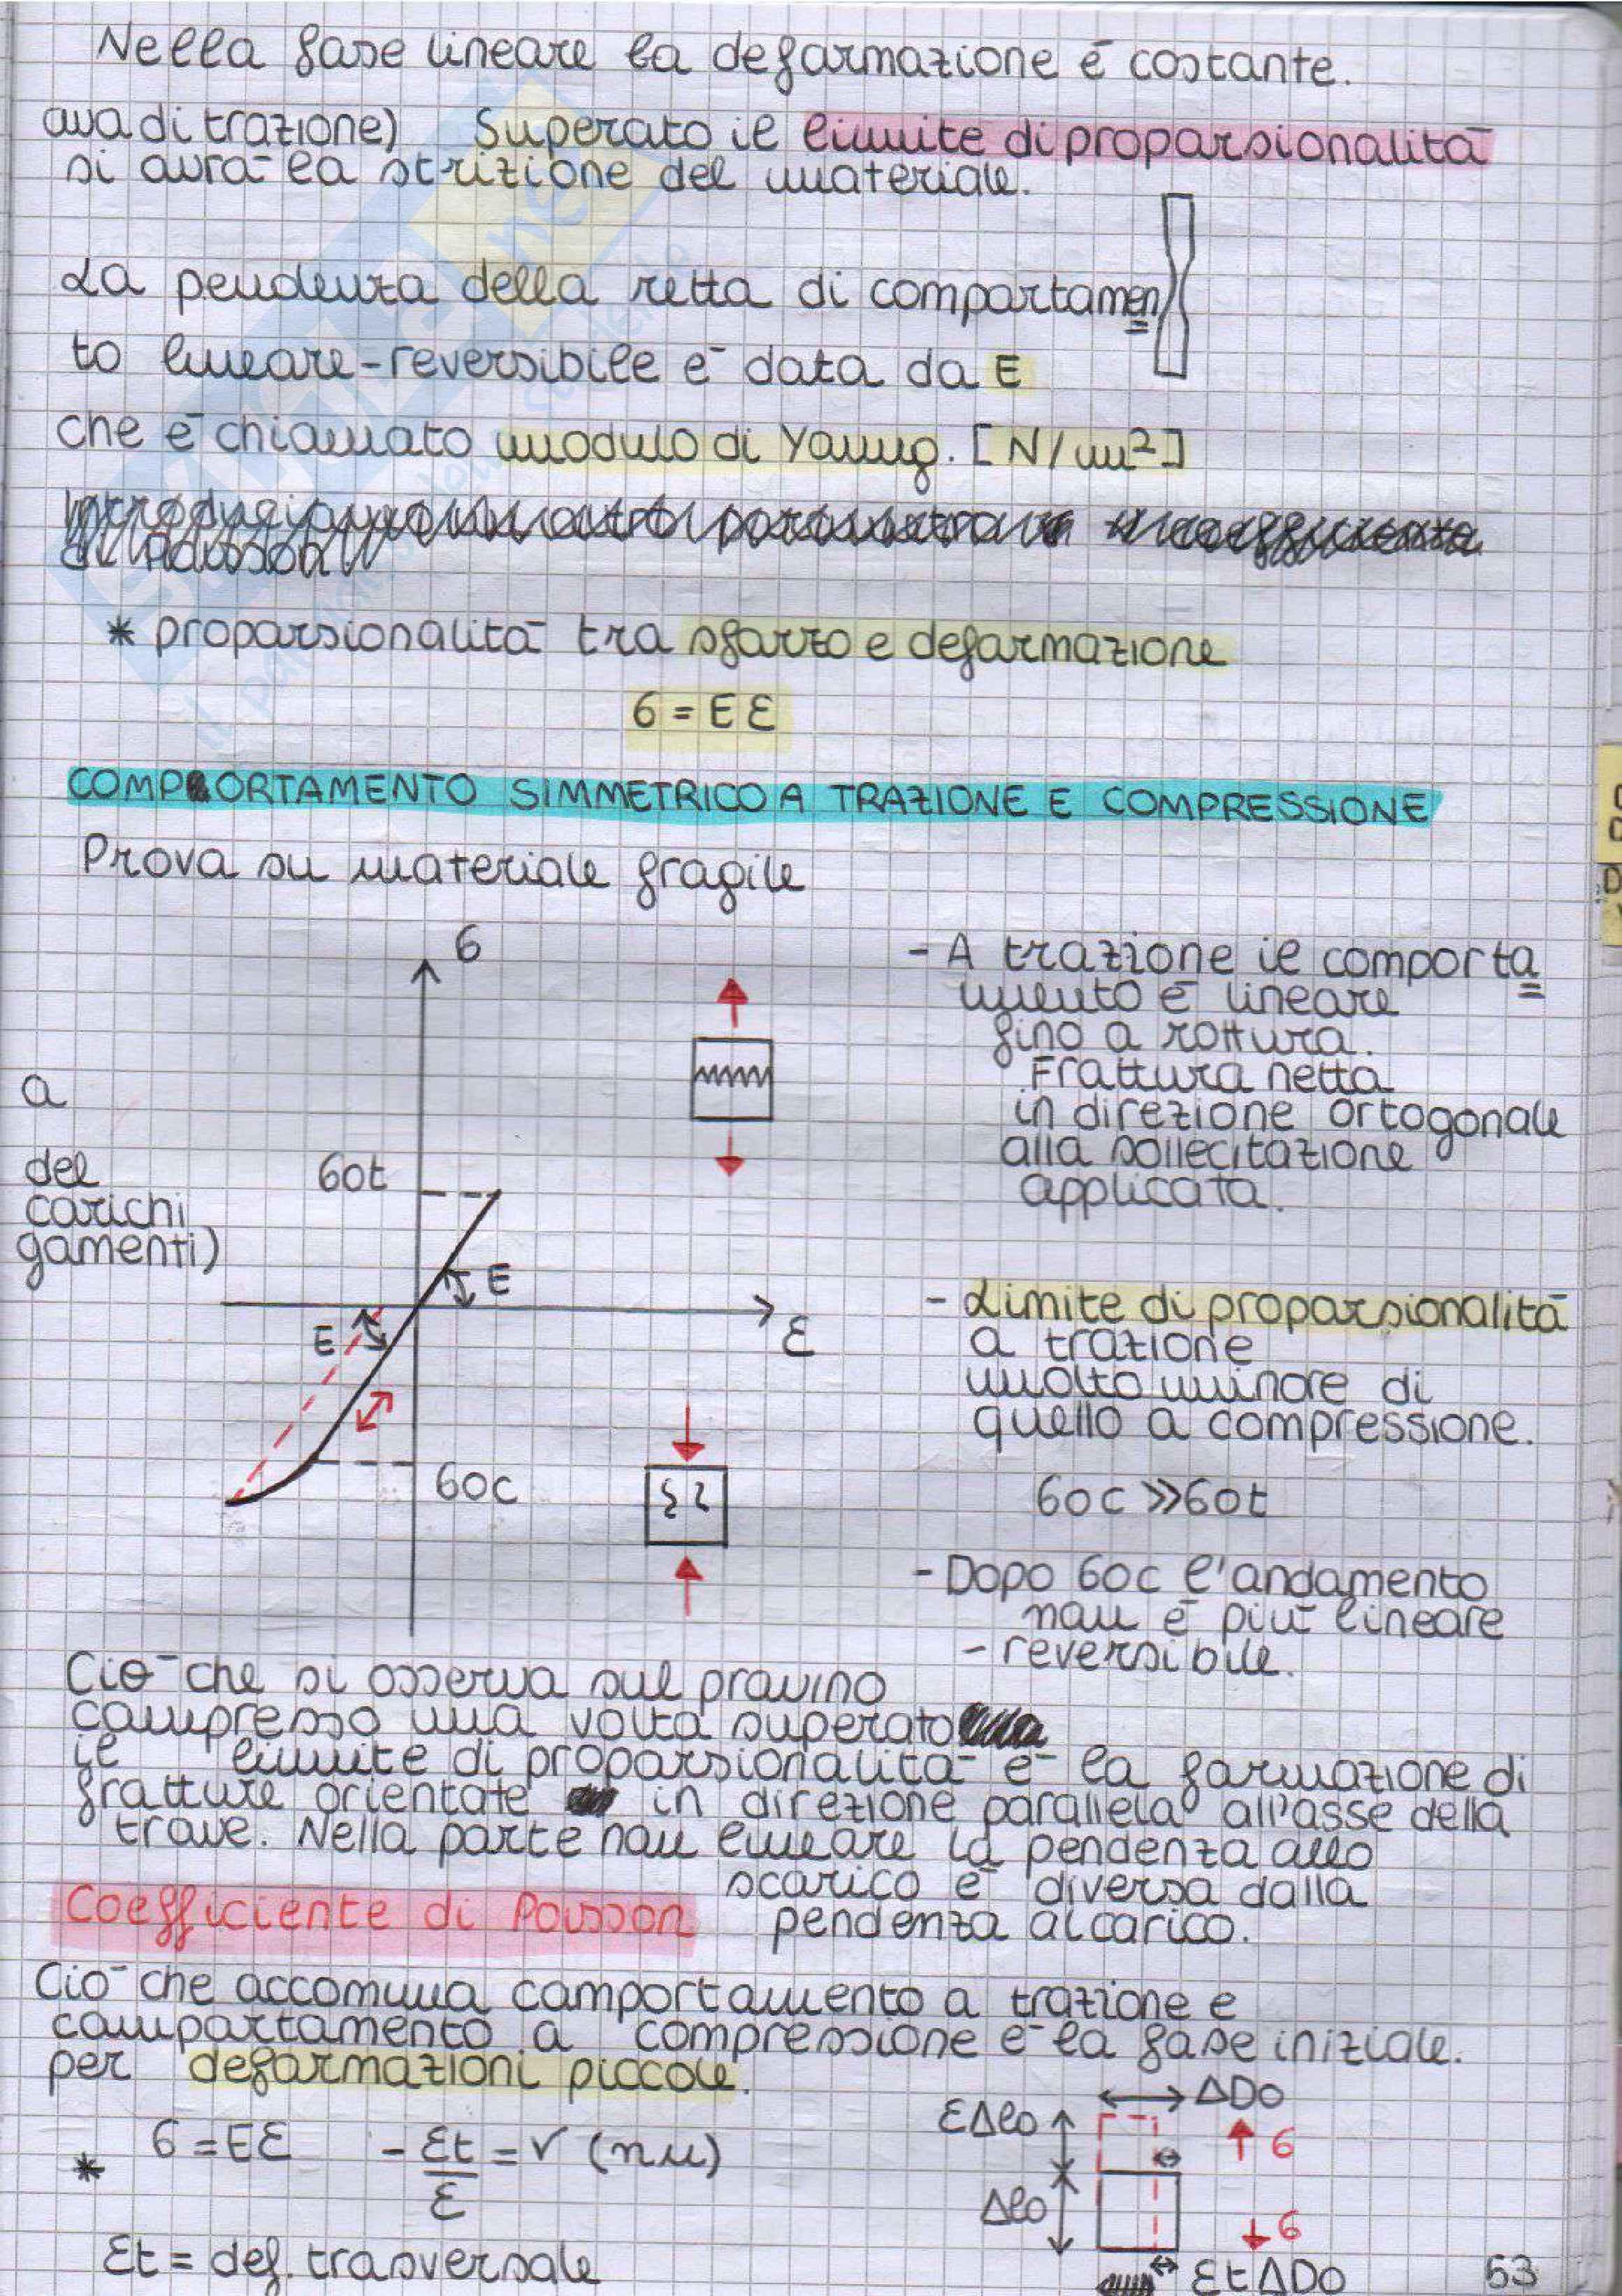 Nella fase lineare la deformazione è costante.
ova di trazione) Superato il limite di proporsionalità
si avrà la strizione del materiale.
La pendenza della retta di comportamen
to lineare-reversibile è data da E
che è chiamato modulo di Young. [N/m²]
* proporsionalità tra sforzo e deformazione
σ = E ε
COMPORTAMENTO SIMMETRICO A TRAZIONE E COMPRESSIONE
Prova su materiale fragile
σ
- A trazione il comporta
mento è lineare
fino a rottura.
Frattura netta
in direzione ortogonale
alla sollecitazione
applicata.
a
del
carichi
gamenti)
σot
E
ε
E
σoc
- Limite di proporsionalità
a trazione
molto minore di
quello a compressione.
σoc >> σot
- Dopo σoc l'andamento
non è più lineare
- reversibile.
Ciò che si osserva sul provino
compresso una volta superato
il limite di proporsionalità è la formazione di
fratture orientate in direzione parallela all'asse della
trave. Nella parte non lineare la pendenza allo
scarico è diversa dalla
pendenza al carico.
Coefficiente di Poisson
Ciò che accomuna comportamento a trazione e
comportamento a compressione è la fase iniziale.
per deformazioni piccole.
* σ = Eε - εt/ε = ν (nu)
εt = def. trasversale
ΔDo
εΔlo
σ
Δlo
σ
εtΔDo
63